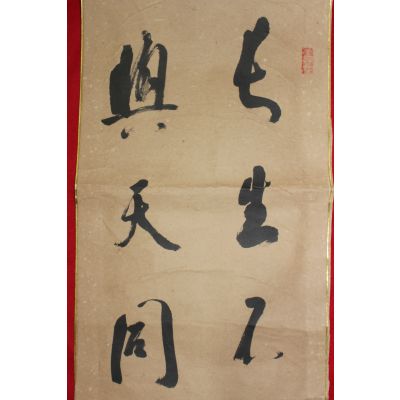 長生不
與天同